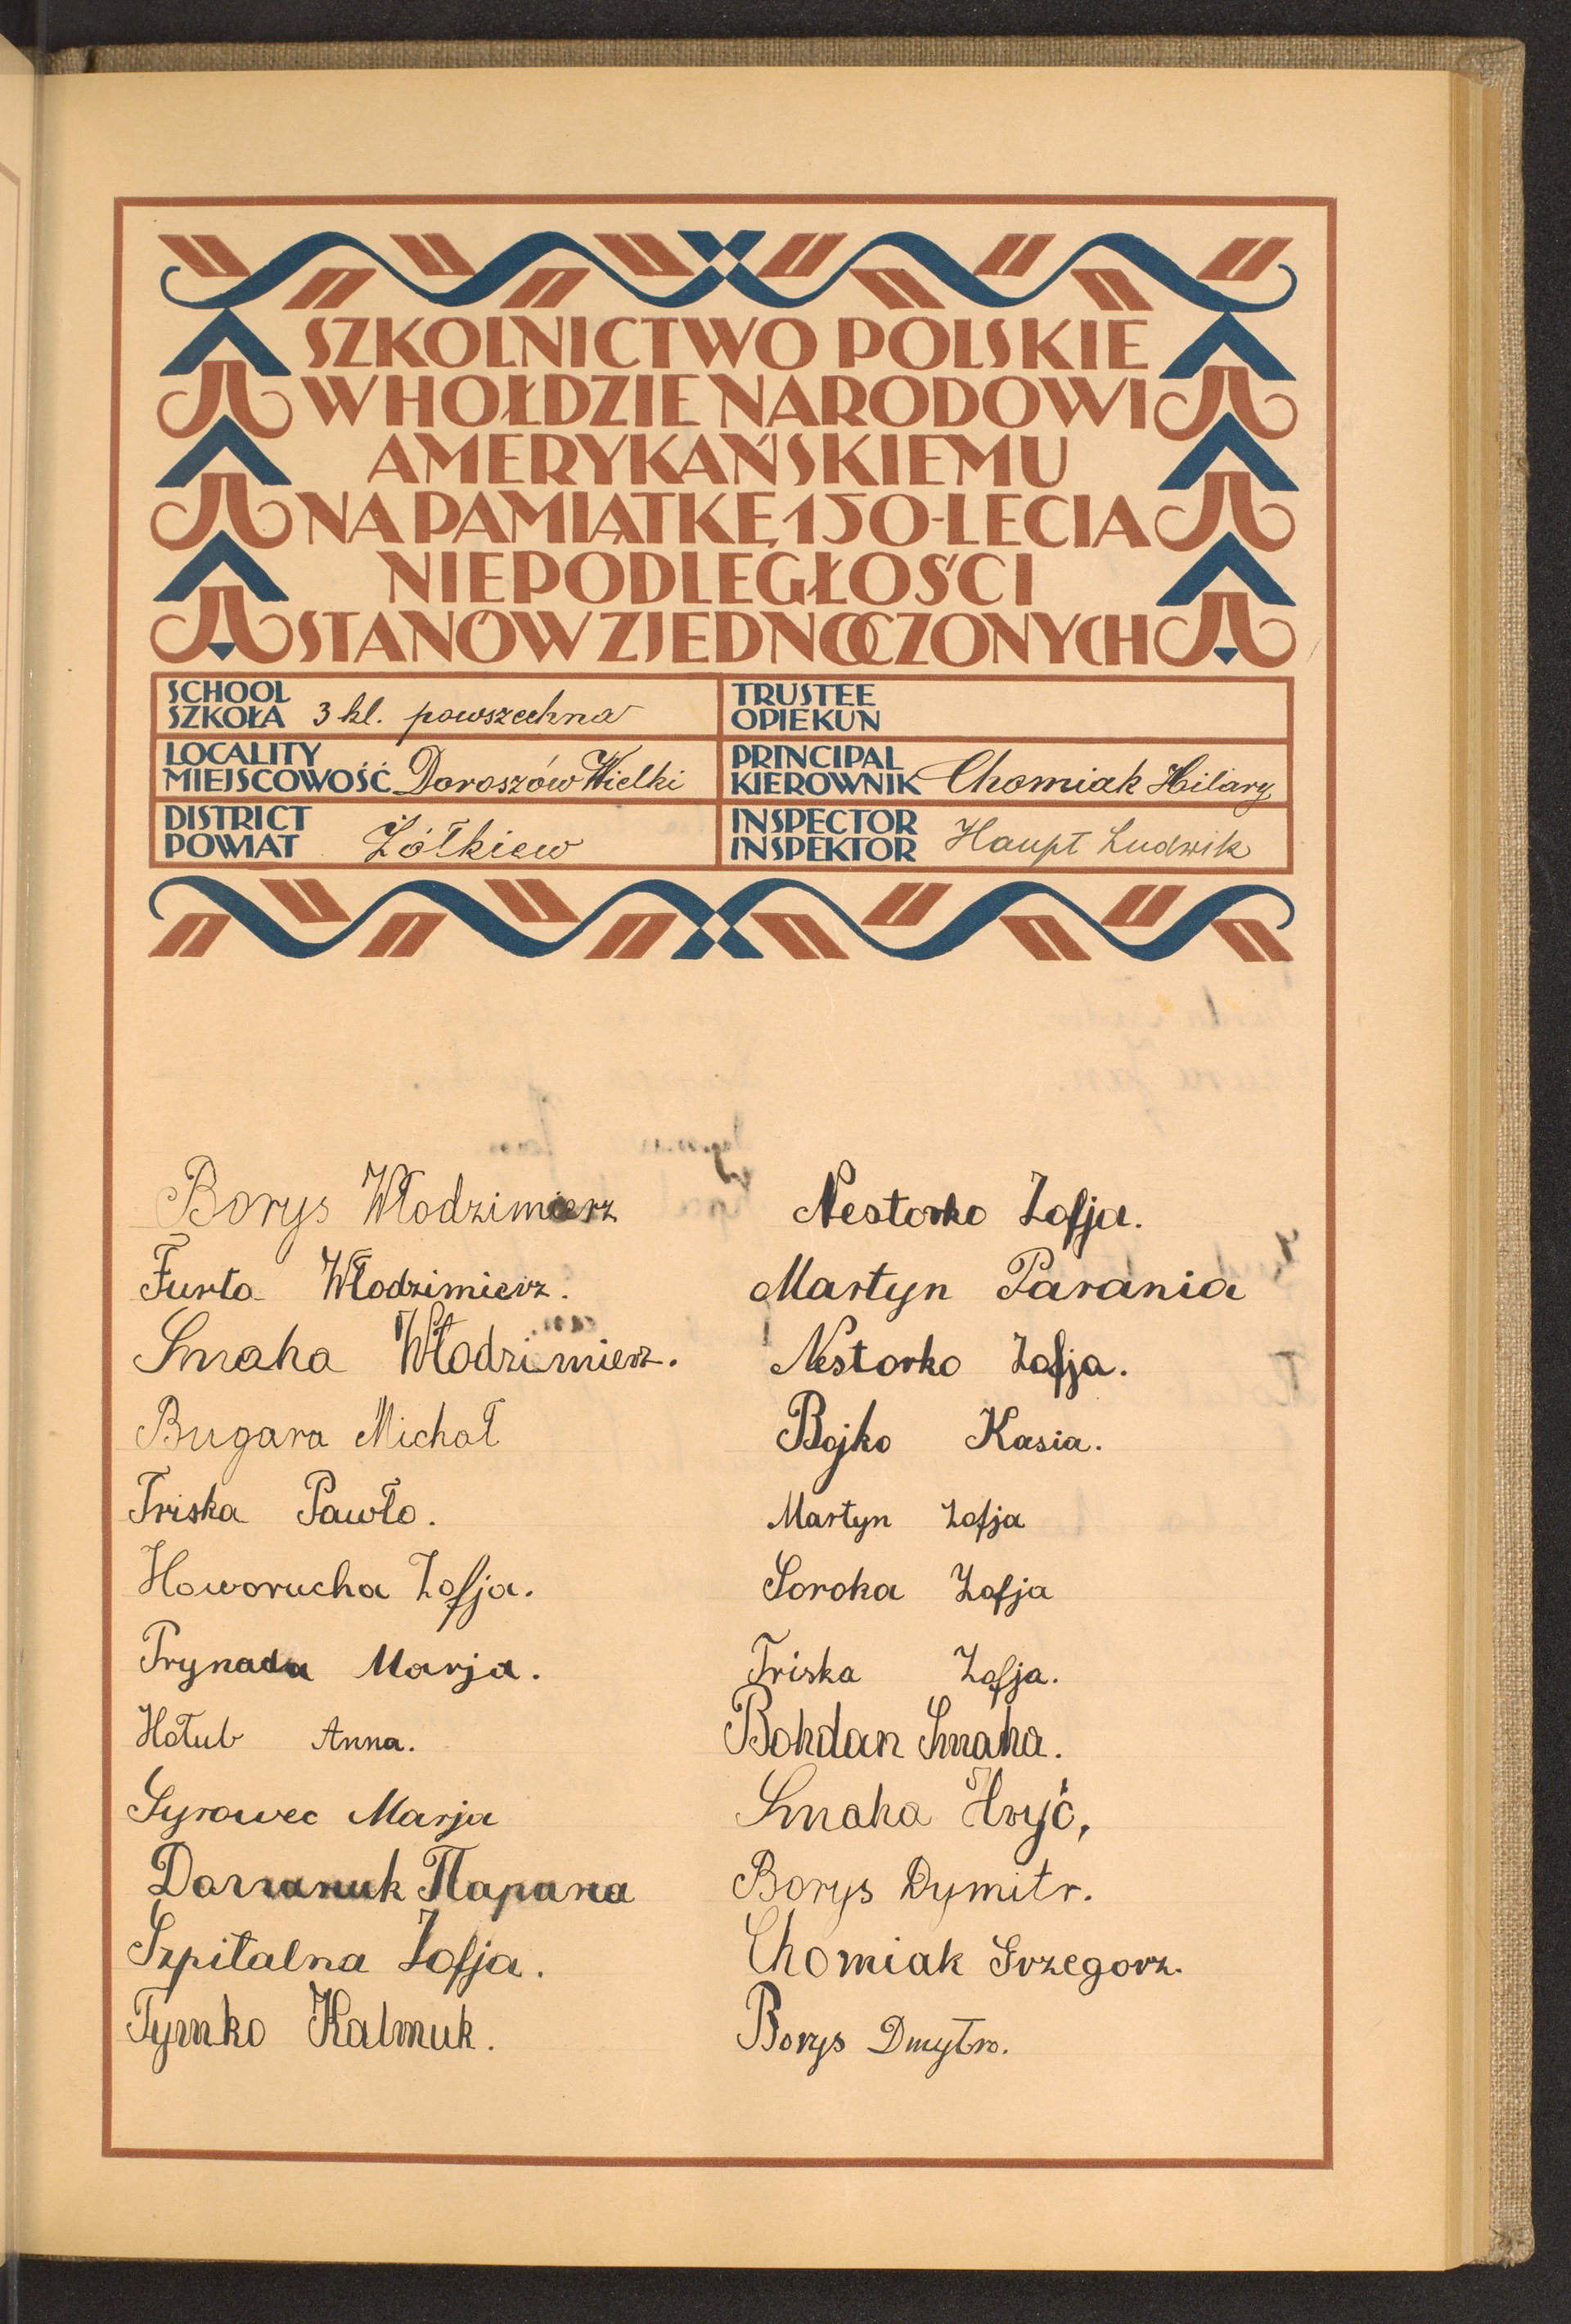 SZKOLNICTWO POLSKIE
W HOŁDZIE NARODOWI
AMERYKAŃSKIEMU
NA PAMIĄTKĘ 150-LECIA
NIEPODLEGŁOŚCI
STANÓW ZJEDNOCZONYCH
SCHOOL
SZKOŁA 3 kl. powszechna
TRUSTEE
OPIEKUN
LOCALITY
MIEJSCOWOŚĆ Doroszów Wielki
PRINCIPAL
KIEROWNIK Chomiak Hilary
DISTRICT
POWIAT Żółkiew
INSPECTOR
INSPEKTOR Haupt Ludwik
Borys Włodzimierz
Furta Włodzimierz.
Smaha Włodzimierz.
Bugara Michał
Triska Pawło.
Howorucha Zofja.
Prynada Marja.
Hołub Anna.
Syrowec Marja
Szpitalna Zofja.
Tymko Kalmuk.
Nestorko Zofja.
Martyn Parania
Nestorko Zofja.
Bojko Kasia.
Martyn Zofja
Soroka Zofja
Triska Zofja.
Bohdan Smaha.
Smaha Hryć,
Borys Dymitr.
Chomiak Grzegorz.
Borys Dmytro.